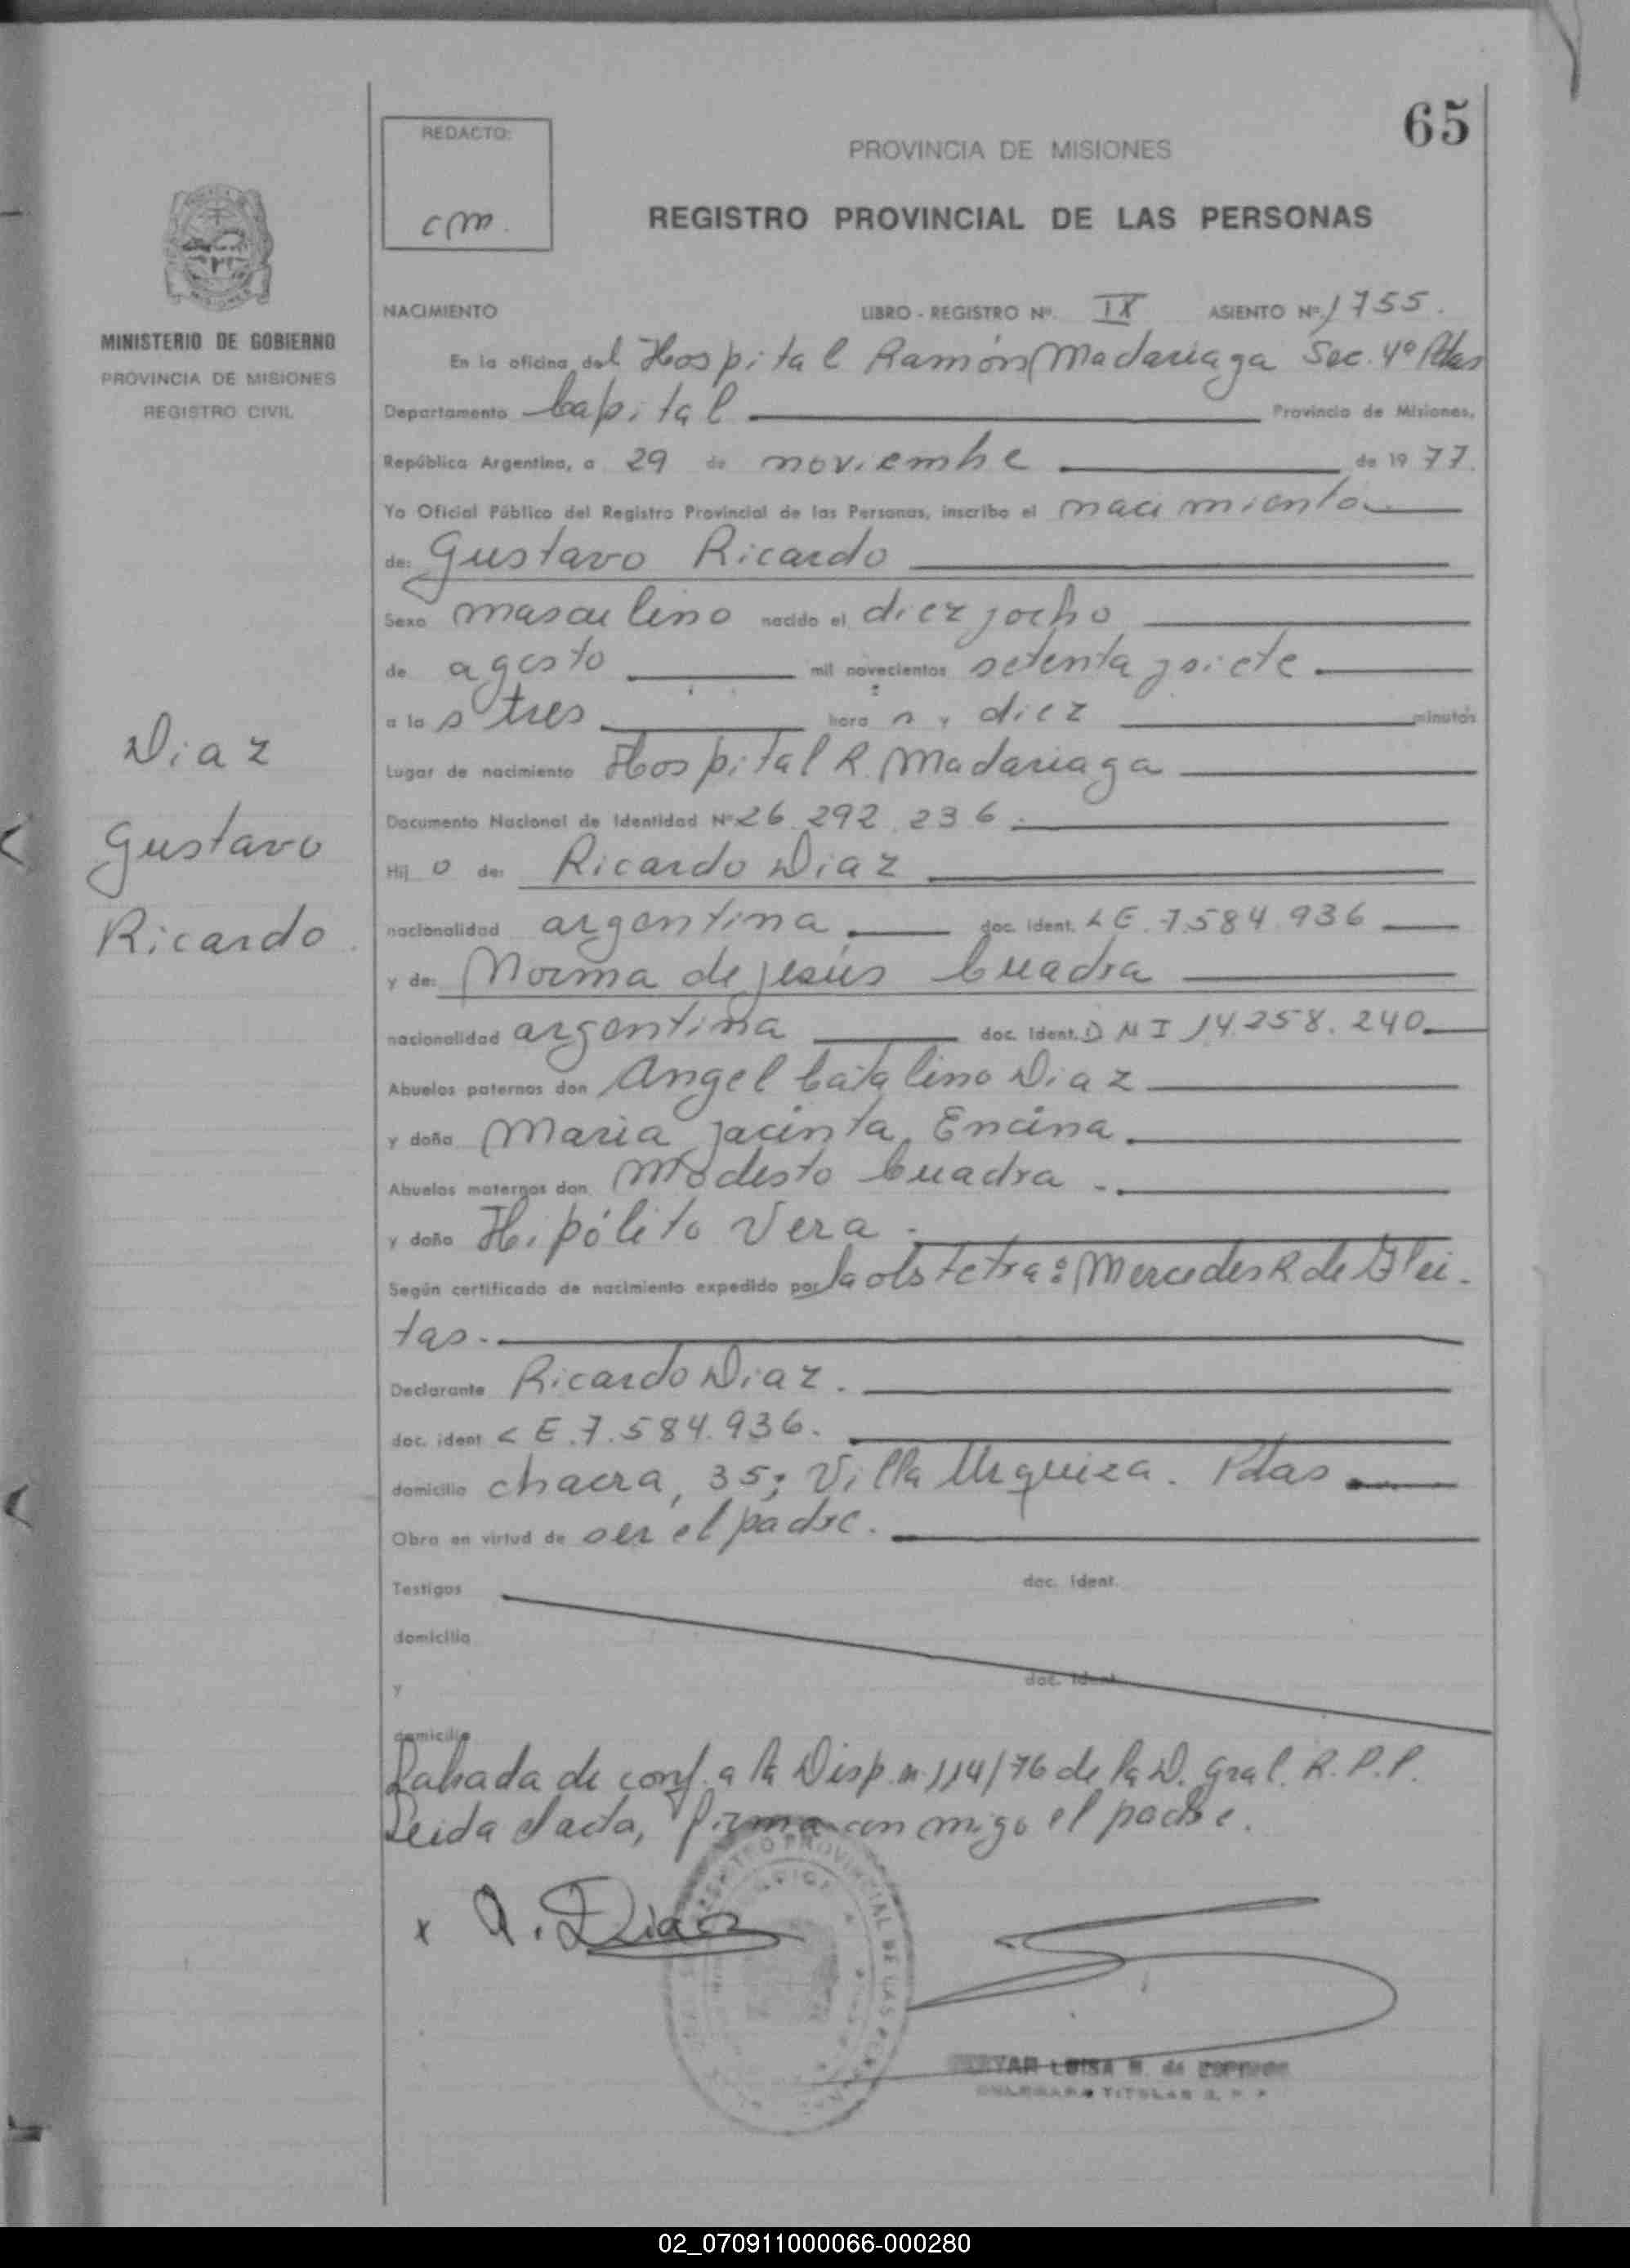 65
REDACTO:
cm.
PROVINCIA DE MISIONES
REGISTRO PROVINCIAL DE LAS PERSONAS
MINISTERIO DE GOBIERNO
PROVINCIA DE MISIONES
REGISTRO CIVIL
NACIMIENTO LIBRO - REGISTRO Nº. IX ASIENTO Nº. 1755.
En la oficina del Hospital Ramón Madariaga Sec. 4º Pdas
Departamento Capital Provincia de Misiones,
República Argentina, a 29 de noviembre de 1977.
Yo Oficial Público del Registro Provincial de las Personas, inscribo el nacimiento
de: Gustavo Ricardo
Sexo masculino nacido el diez y ocho
de agosto mil novecientos setenta y siete
a las tres horas y diez minutos
Lugar de nacimiento Hospital R. Madariaga
Documento Nacional de Identidad Nº 26.292.236.
Hijo de: Ricardo Diaz
nacionalidad argentina doc. ident. LE. 7.584.936
y de: Norma de Jesús Cuadra
nacionalidad argentina doc. ident. DNI 14.258.240
Abuelos paternos don Angel Catalino Diaz
y doña Maria Jacinta Encina
Abuelos maternos don Modesto Cuadra
y doña Hipólito Vera.
Según certificado de nacimiento expedido por la obstetra: Mercedes R. de Glei-
tas.
Declarante Ricardo Diaz.
doc. ident. LE. 7.584.936.
domicilio chacra, 35; Villa Urquiza. Pdas
Obra en virtud de ser el padre.
Testigos doc. ident.
domicilio
y doc. ident.
domicilio
Labrada de conf. a la Disp. n. 114/76 de la D. Gral. R. P. P.
Leida el acta, firma conmigo el padre.
x R. Diaz
REGISTRO PROVINCIAL DE LAS
LUISA
TITULAR
Diaz
Gustavo
Ricardo.
02_070911000066-000280